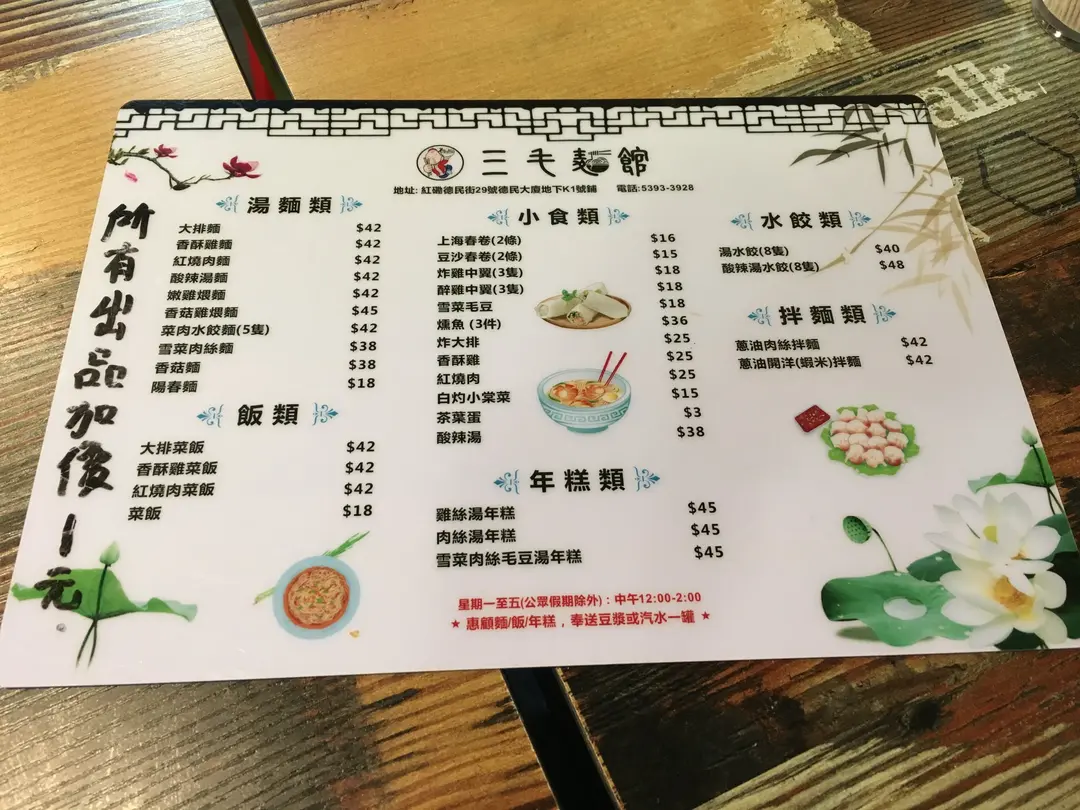 三毛麵館
地址: 紅磡德民街29號德民大廈地下K1號鋪 電話:5393-3928
所有出品加價1元.
湯麵類
大排麵 $42
香酥雞麵 $42
紅燒肉麵 $42
酸辣湯麵 $42
嫩雞煨麵 $42
香菇雞煨麵 $45
菜肉水餃麵(5隻) $42
雪菜肉絲麵 $38
香菇麵 $38
陽春麵 $18
飯類
大排菜飯 $42
香酥雞菜飯 $42
紅燒肉菜飯 $42
菜飯 $18
小食類
上海春卷(2條) $16
豆沙春卷(2條) $15
炸雞中翼(3隻) $18
醉雞中翼(3隻) $18
雪菜毛豆 $18
燻魚 (3件) $36
炸大排 $25
香酥雞 $25
紅燒肉 $25
白灼小棠菜 $15
茶葉蛋 $3
酸辣湯 $38
年糕類
雞絲湯年糕 $45
肉絲湯年糕 $45
雪菜肉絲毛豆湯年糕 $45
星期一至五(公眾假期除外)：中午12:00-2:00
★ 惠顧麵/飯/年糕，奉送豆漿或汽水一罐 ★
水餃類
湯水餃(8隻) $40
酸辣湯水餃(8隻) $48
拌麵類
蔥油肉絲拌麵 $42
蔥油開洋(蝦米)拌麵 $42